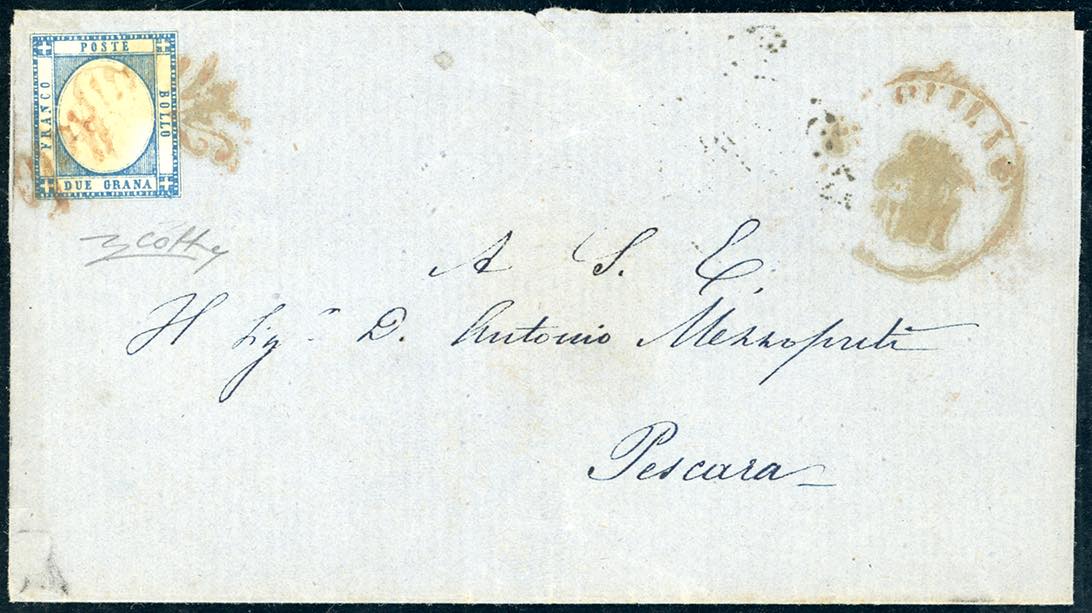 POSTE
FRANCO
BOLLO
DUE GRANA
A S. E.
Il Sig.r D. Antonio Mezzopreti
Pescara